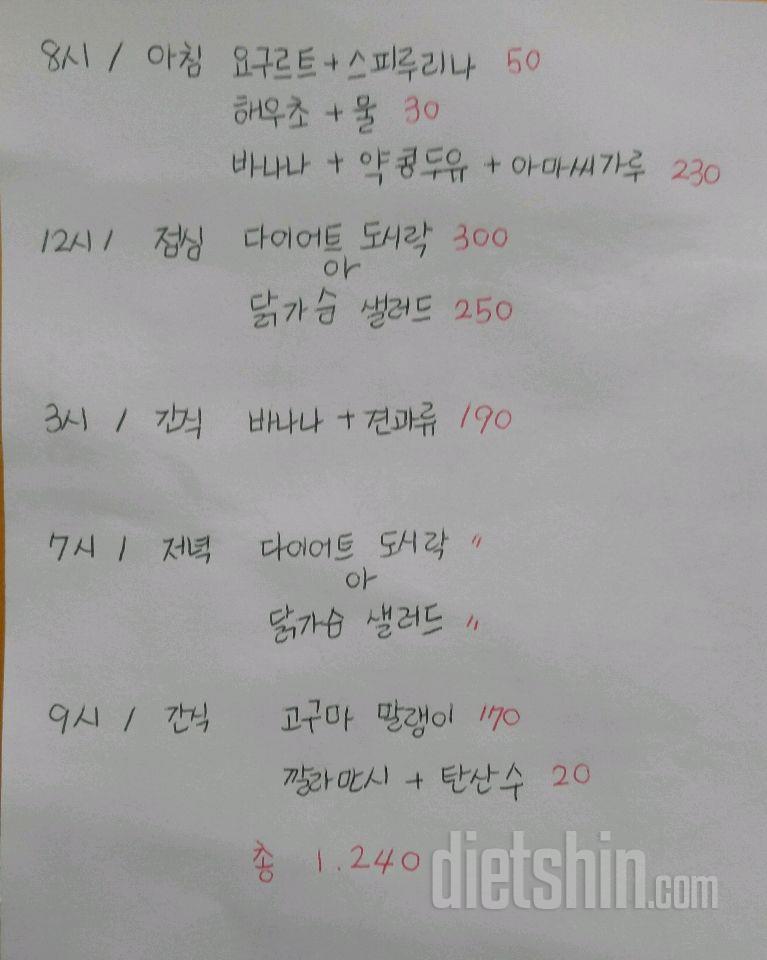 8시 / 아침 요구르트 + 스피루리나 50
해우초 + 물 30
바나나 + 약콩두유 + 아마씨가루 230
12시 / 점심 다이어트 도시락 300
or
닭가슴 샐러드 250
3시 / 간식 바나나 + 견과류 190
7시 / 저녁 다이어트 도시락 〃
or
닭가슴 샐러드 〃
9시 / 간식 고구마 말랭이 170
깔라만시 + 탄산수 20
총 1.240
dietshin.com